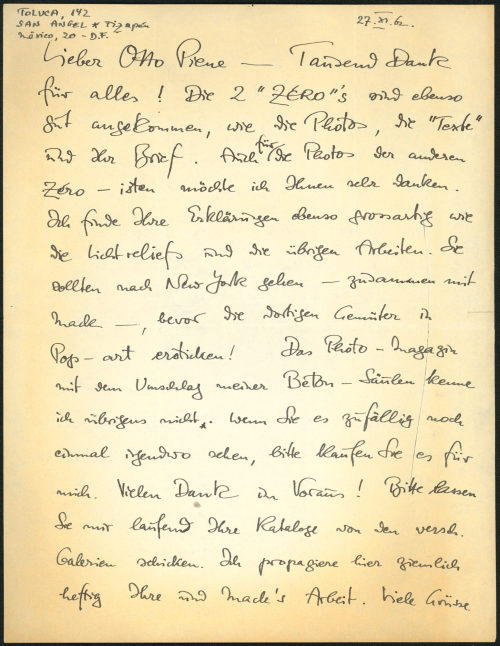 TOLUCA, 142
SAN ANGEL * Tizapán
México, 20 - D.F.
27. XI. 62.
Lieber Otto Piene — Tausend Dank
für alles! Die 2 "ZERO"'s sind ebenso
gut angekommen, wie die Photos, die "Texte"
und Ihr Brief. Auch für die Photos der anderen
Zero-isten möchte ich Ihnen sehr danken.
Ich finde Ihre Erklärungen ebenso grossartig wie
die Lichtreliefs und die übrigen Arbeiten. Sie
sollten nach New York gehen — zusammen mit
Mack —, bevor die dortigen Gemüter in
Pop-art ersticken! Das Photo-Magazin
mit dem Umschlag meiner Beton-Säulen kenne
ich übrigens nicht. Wenn Sie es zufällig noch
einmal irgendwo sehen, bitte kaufen Sie es für
mich. Vielen Dank im Voraus! Bitte lassen
Sie mir laufend Ihre Kataloge von den versch.
Galerien schicken. Ich propagiere hier ziemlich
heftig Ihre und Mack's Arbeit. Viele Grüsse